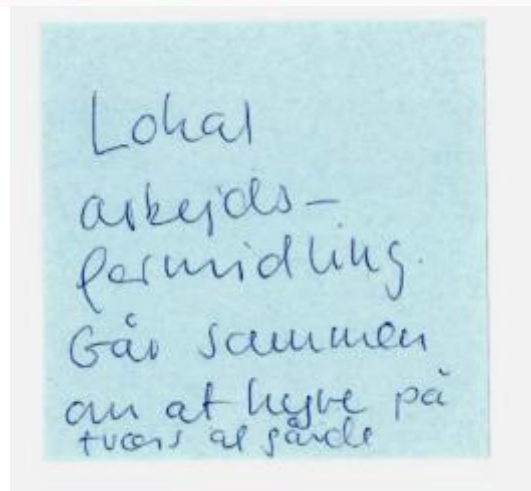 Lokal
arbejds-
formidling.
Går sammen
om at hyre på
tværs af gårde